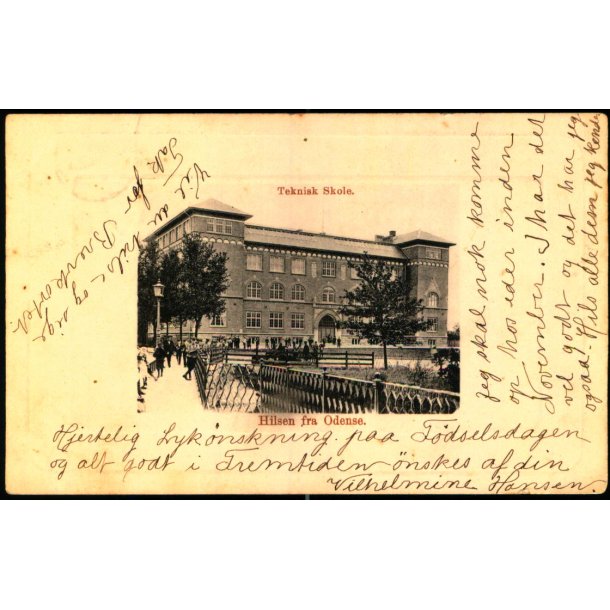 Teknisk Skole.
Hilsen fra Odense.
Hjertelig Lykønskning paa Fødselsdagen
og alt godt i Fremtiden ønskes af din
Vilhelmine Hansen.
jeg skal nok komme
op hos eder inden
November. I har det
vel godt og det har jeg
ogsaa. Hils alle dem jeg kender
Vil du hilse og sige
Tak for Brevkortet.